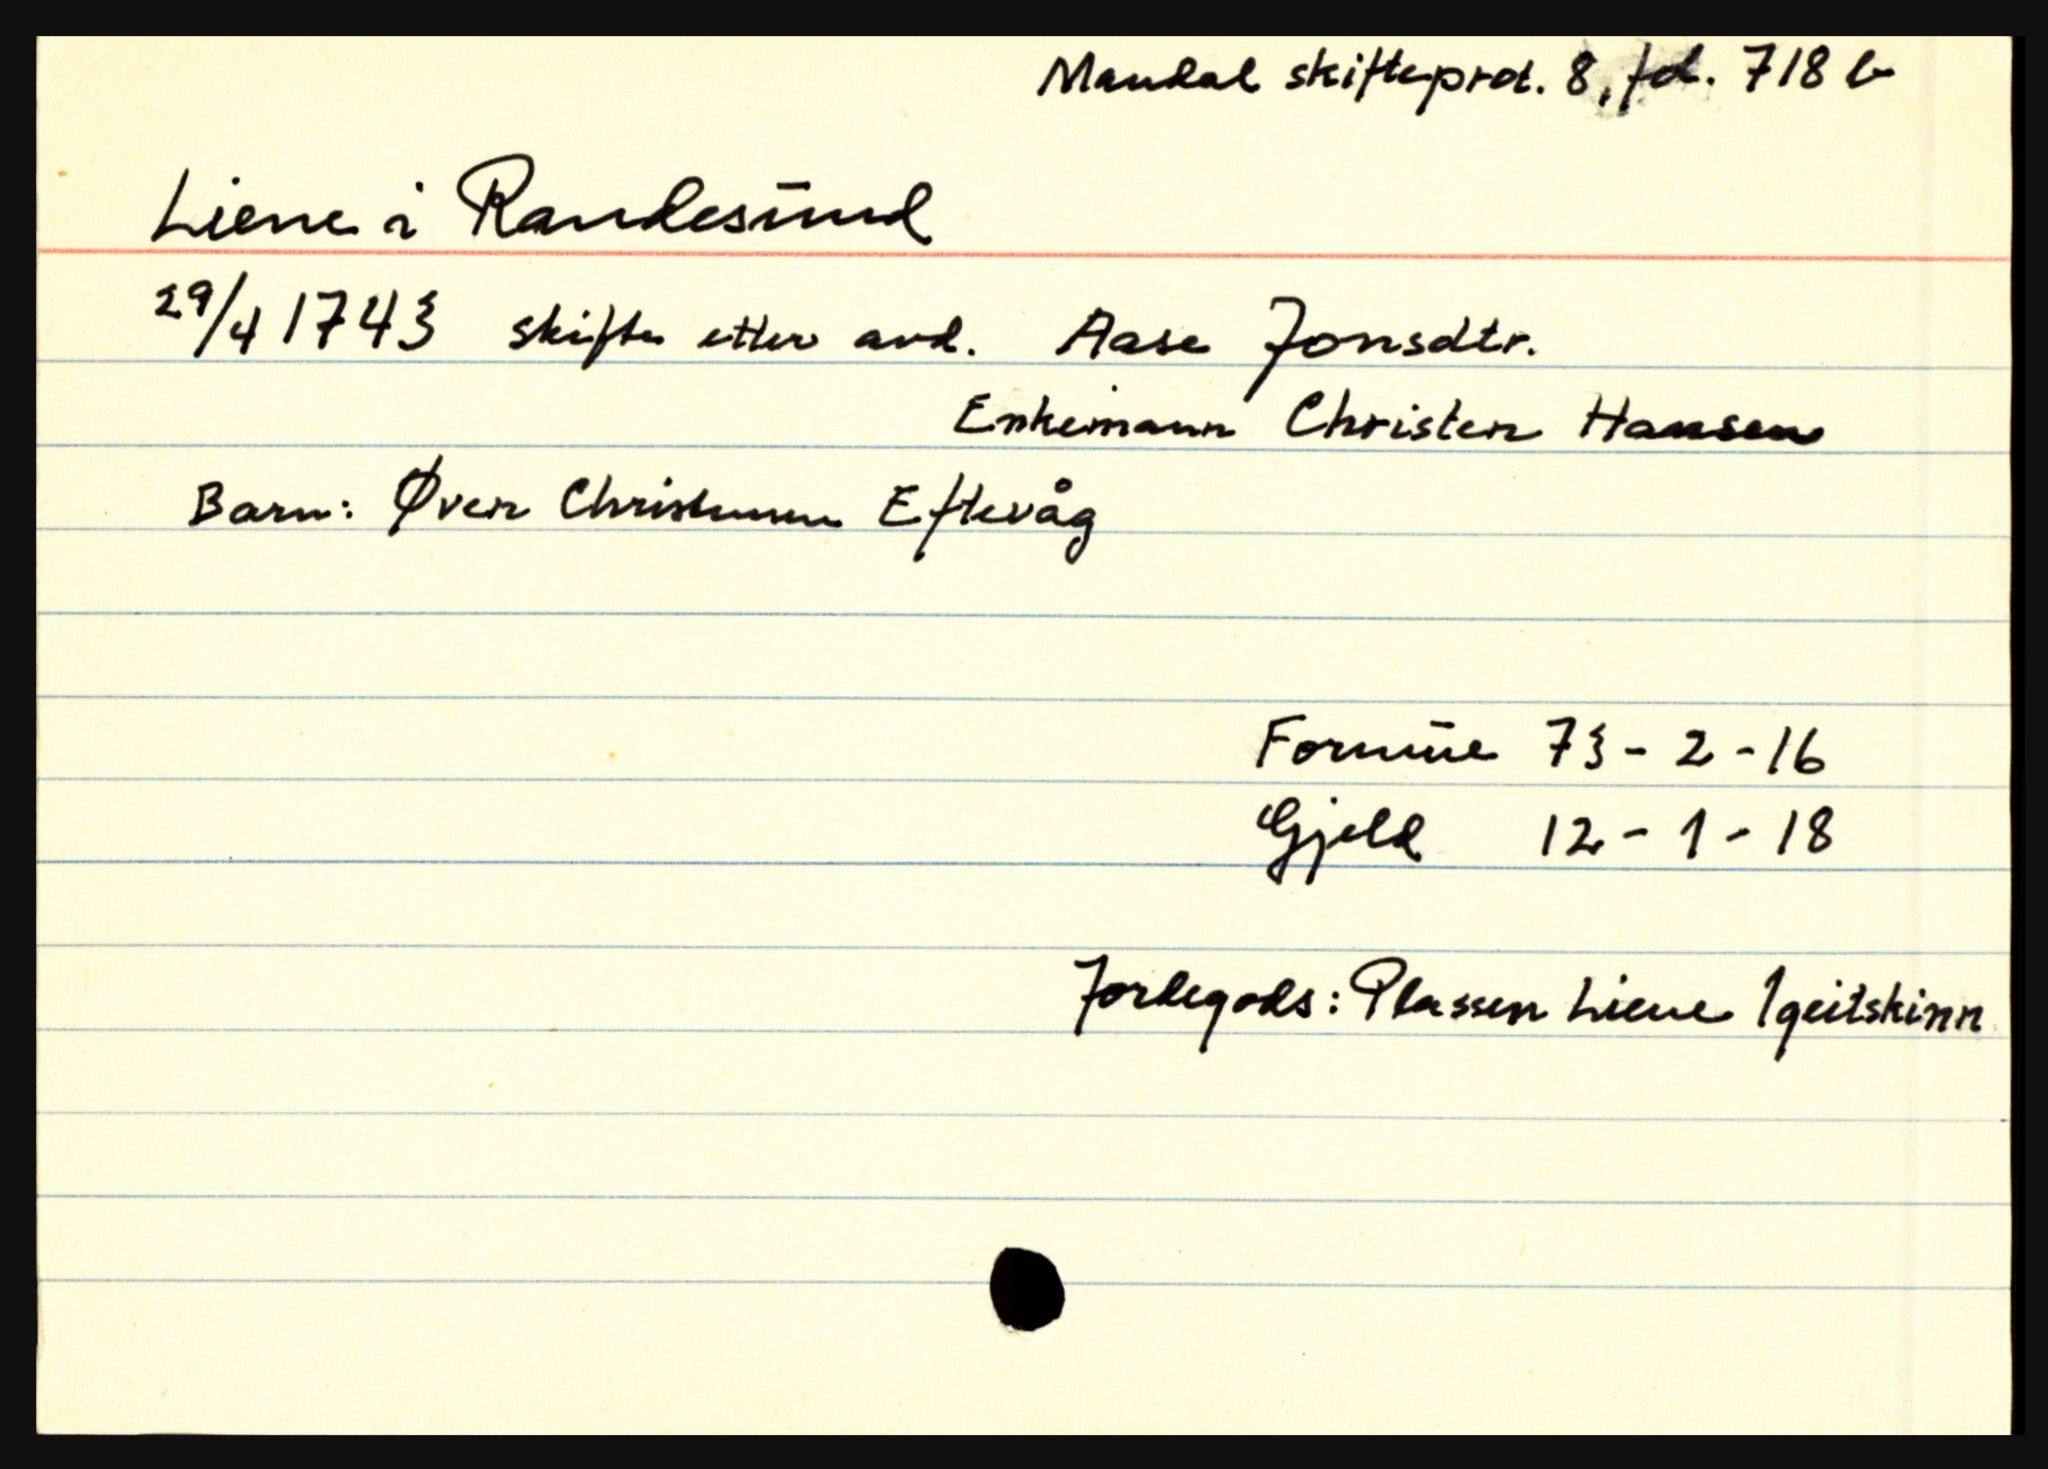 Mandal skifteprot. 8, fol. 718 b
Liene i Randesund
29/4 1743 skifte etter avd. Aase Jonsdtr.
Enkemann Christen Hansen
Barn: Øven Christensen Eftevåg
Formue 73 - 2 - 16
Gjeld 12 - 1 - 18
Jordegods: Plassen Liene 1 geitskinn